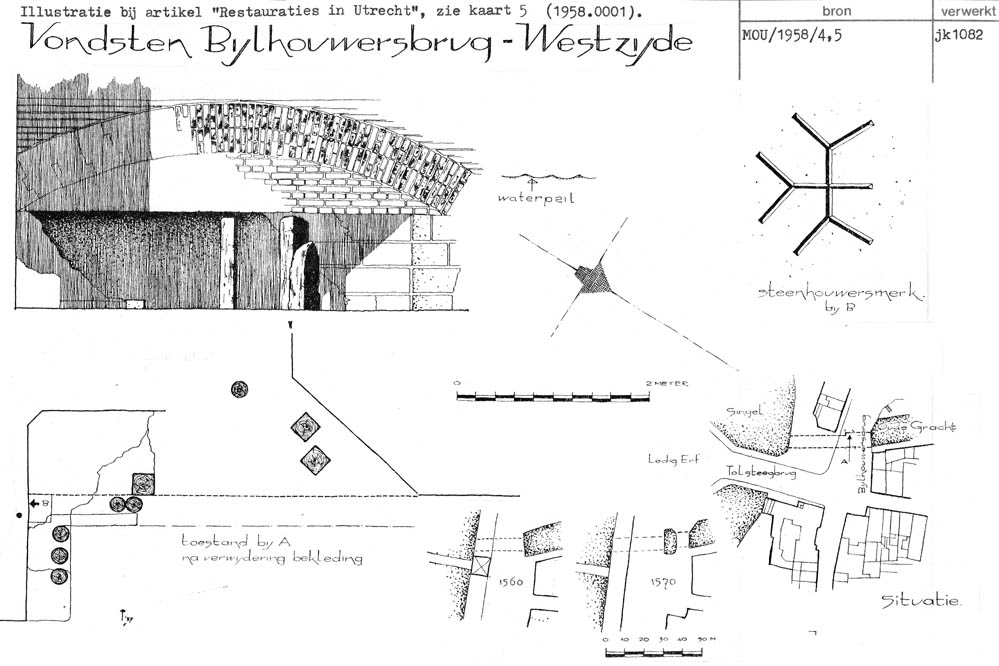 Illustratie bij artikel "Restauraties in Utrecht", zie kaart 5 (1958.0001).
bron
verwerkt
MOU/1958/4,5
jk1082
Vondsten Bylhouwersbrug - Westzyde
waterpeil
steenhouwersmerk.
by B
0
2 METER
Singel
Ledig Erf
Tolsteegbrug
Bylhouwersbrug
Oude Gracht
A
B
toestand by A
na verwydering bekleding
1560
1570
Situatie.
0 10 20 30 40 50 M